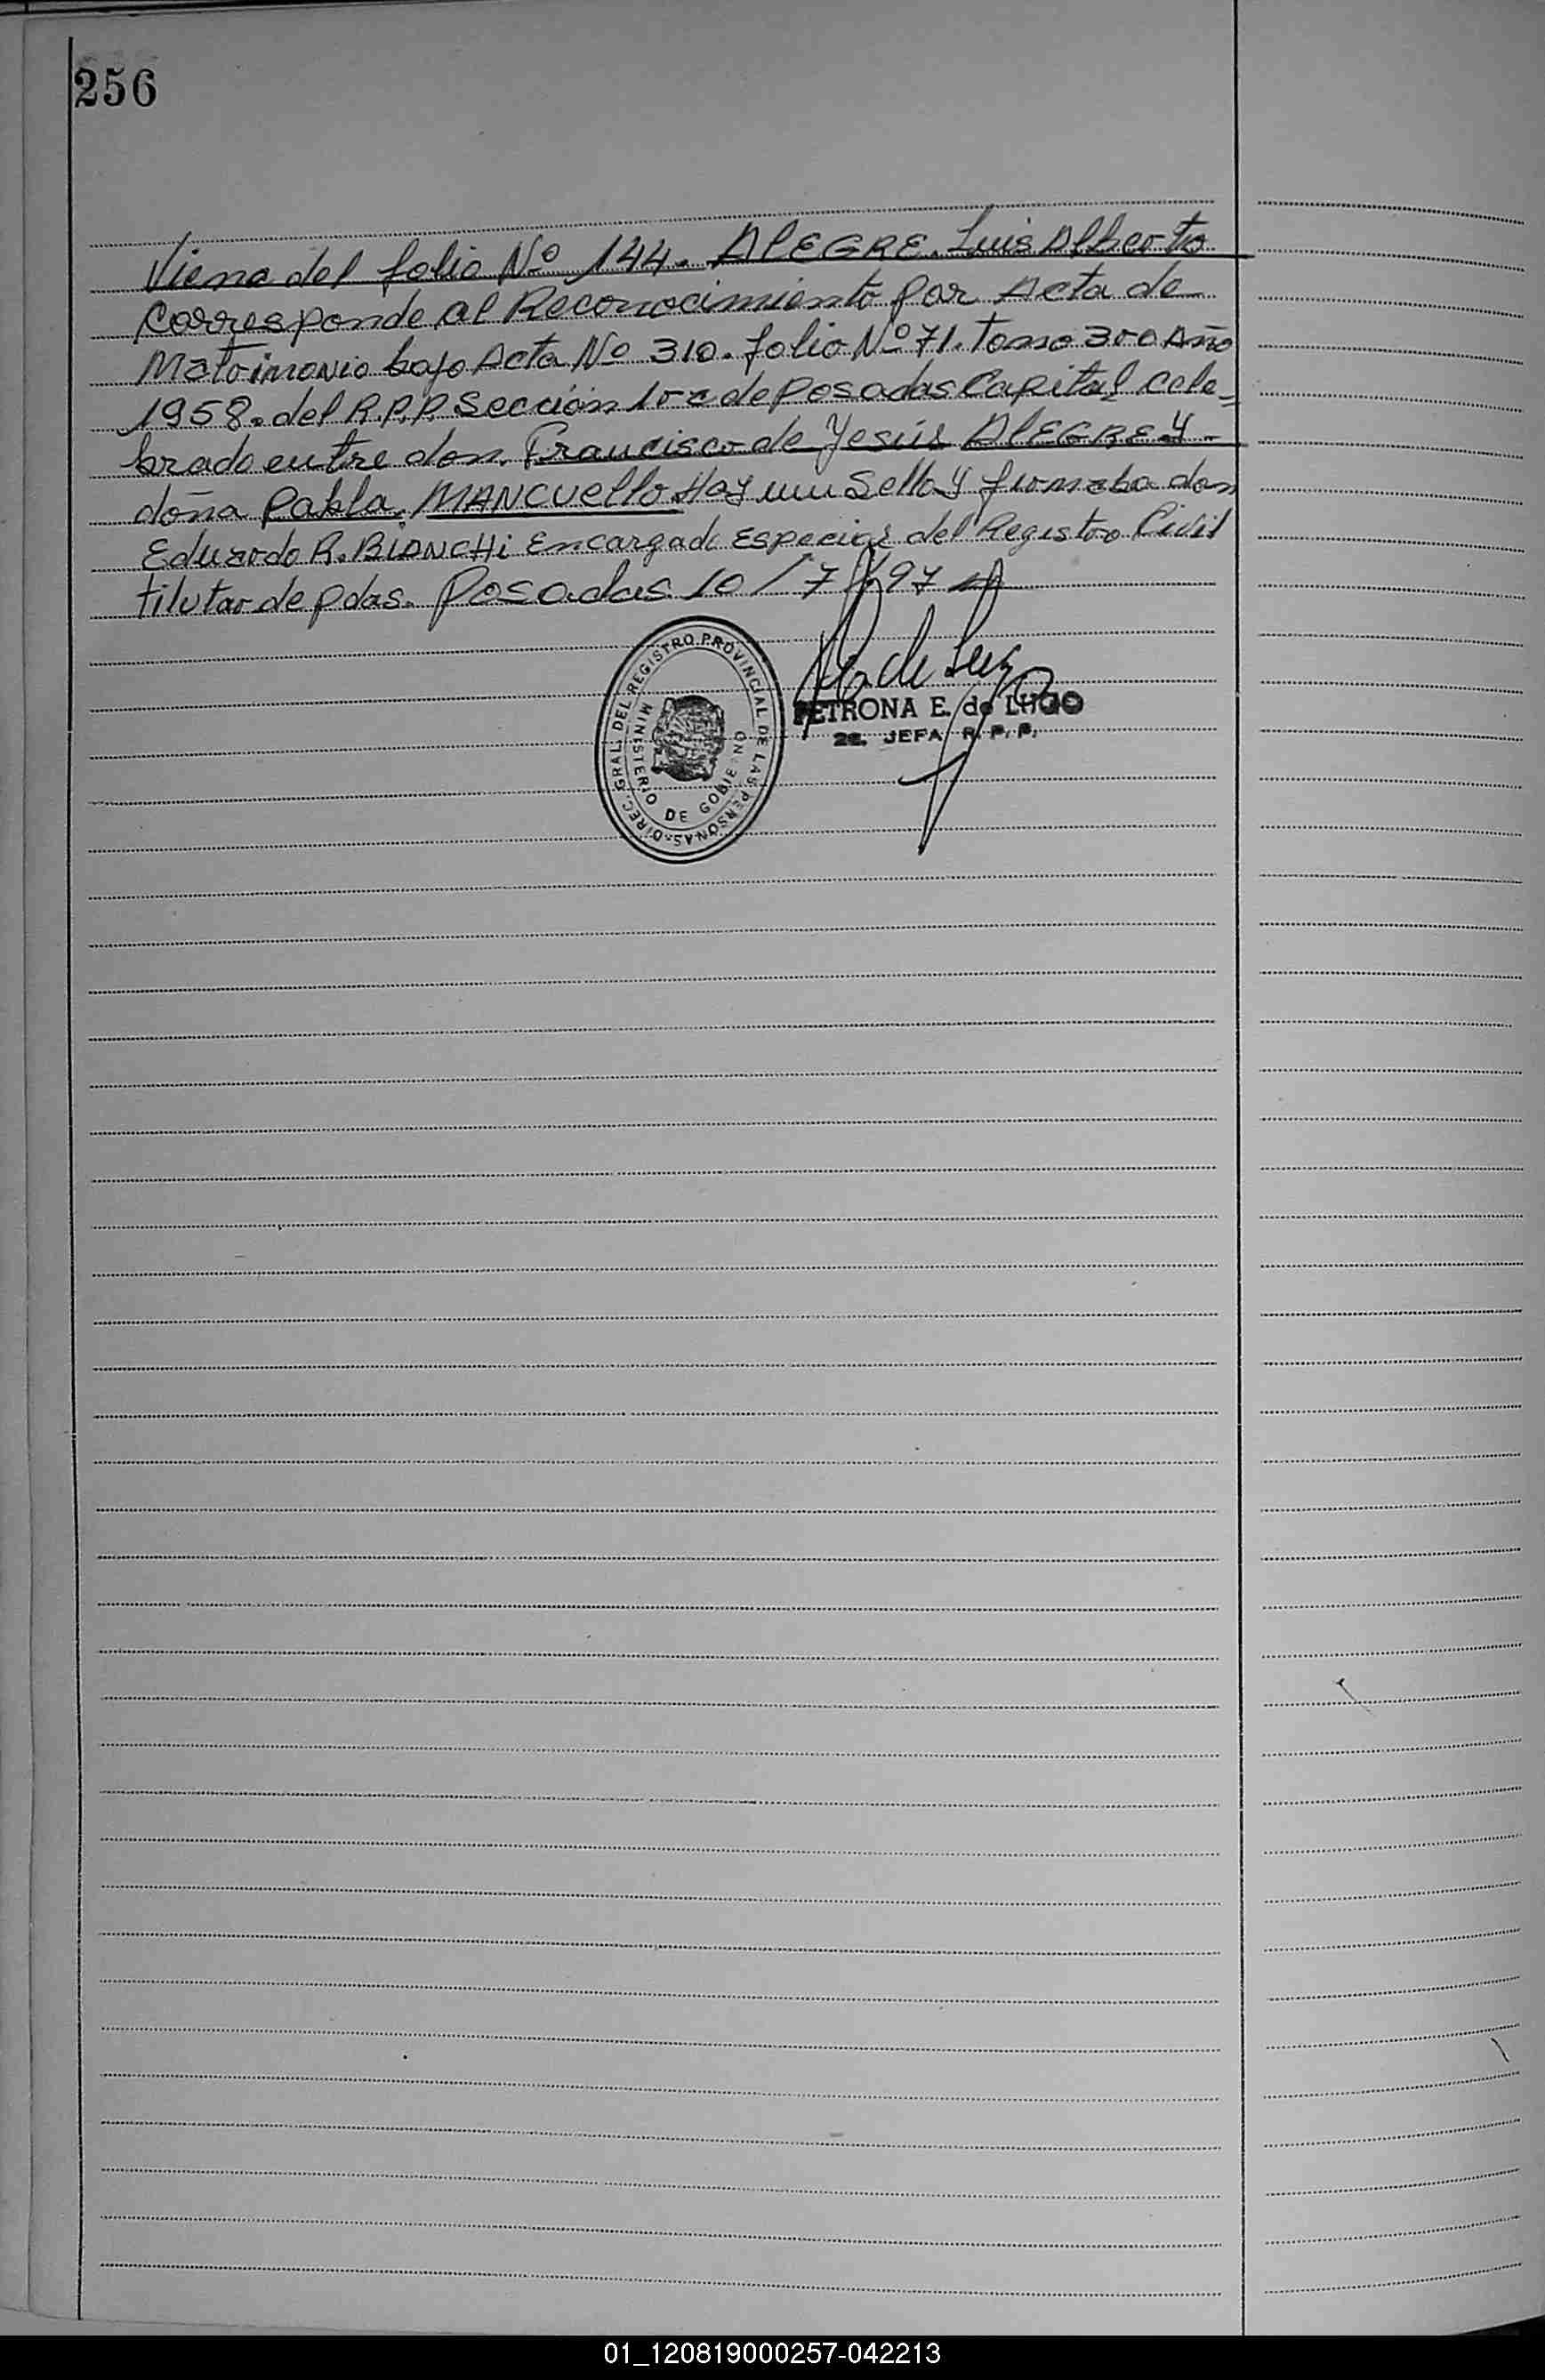 256
Viene del folio Nº 144. AlEGRE. Luis Alberto
Corresponde al Reconocimiento por Acta de
Matrimonio bajo Acta Nº 310. folio Nº 71. Tomo 3ro Año
1958. del R.P.P. Sección 1ra de Posadas Capital cele-
brado entre don. Francisco de Jesús AlEGRE y-
doña Pabla. MANCUEllo. Hay un Sello y firmaba don
Eduardo R. BIANCHi Encargado Especial del Registro Civil
titular de pdas. Posadas 10/7/
DIREC. GRAL. DEL REGISTRO PROVINCIAL DE LAS PERSONAS
MINISTERIO DE GOBIERNO
PETRONA E. de LUGO
2a. JEFA R. P. P.
01_120819000257-042213